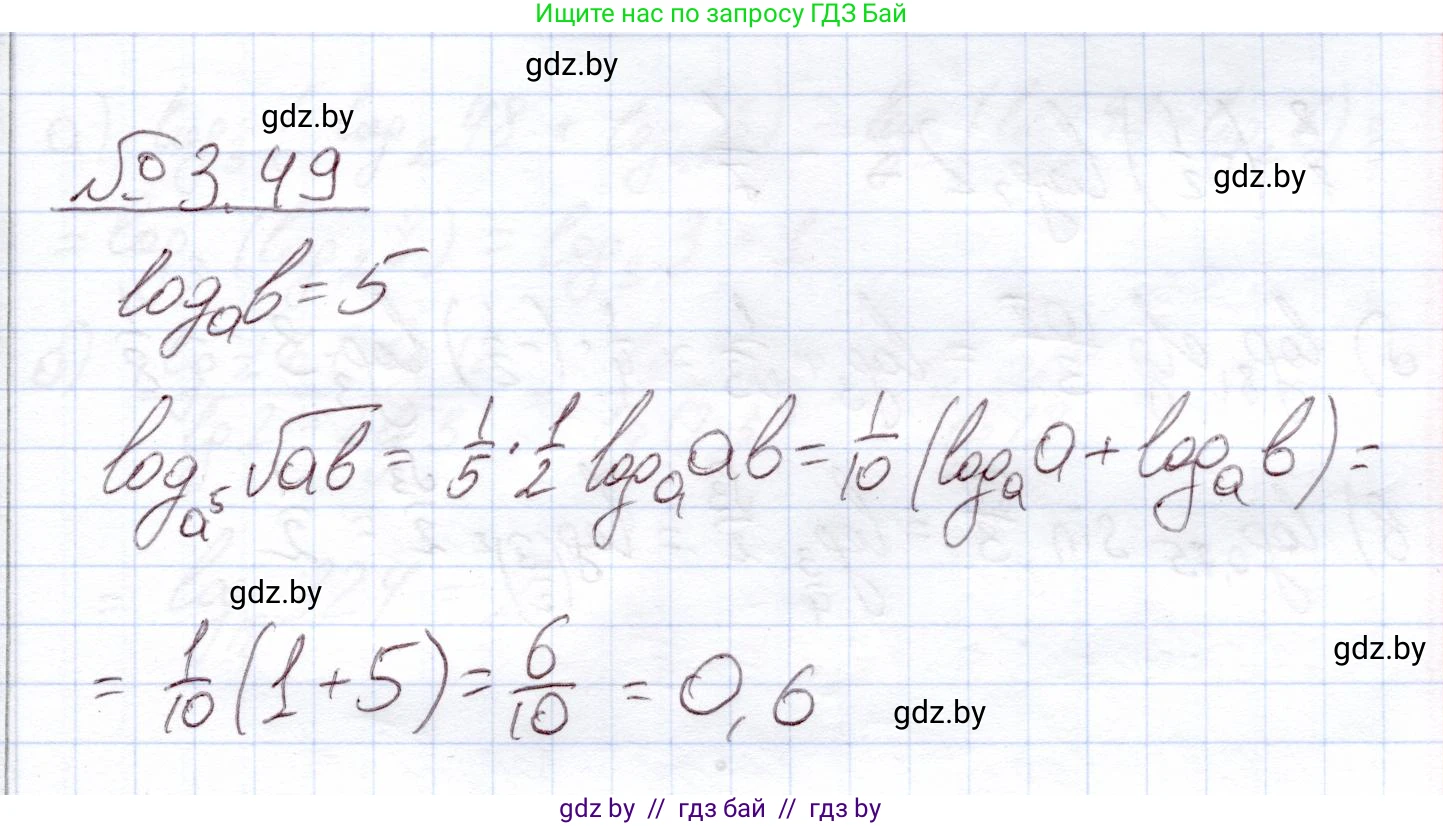 Ищите нас по запросу ГДЗ Бай
gdz.by
gdz.by
№ 3.49
gdz.by
logₐb = 5
log_{a⁵} √ab = 1/5 · 1/2 logₐ ab = 1/10 (logₐ a + logₐ b) =
gdz.by
= 1/10 (1 + 5) = 6/10 = 0,6
gdz.by
gdz.by
gdz by // гдз бай // гдз by